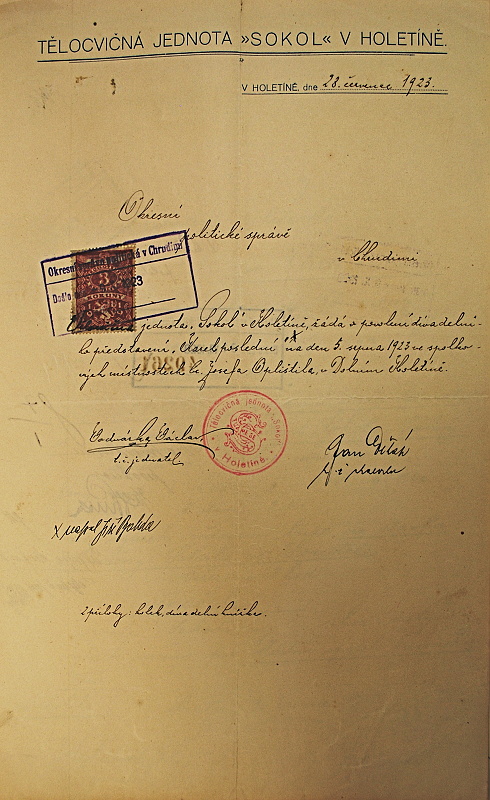 TĚLOCVIČNÁ JEDNOTA »SOKOL« V HOLETÍNĚ.
V HOLETÍNĚ, dne 28. července 1923.
Okresní
politické správě
v Chrudimi
Okresní politická v Chrudimi
Došlo 1923
3
KORUNY
jednota „Sokol" v Holetíně, žádá o povolení divadelní-
ho představení, poslední x na den 5. srpna 1923 ve spolko-
vých místnostech u Josefa Oplištila, v Dolním Holetíně.
Tělocvičná jednota „Sokol"
v Holetíně.
Václav
t. č. jednatel
Jan
t. č. starosta
x napsal
2 přílohy: kolek, divadelní knížka.